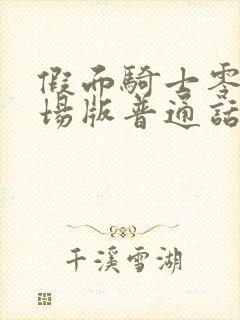 假面騎士零
場版普通話
千溪雪湖